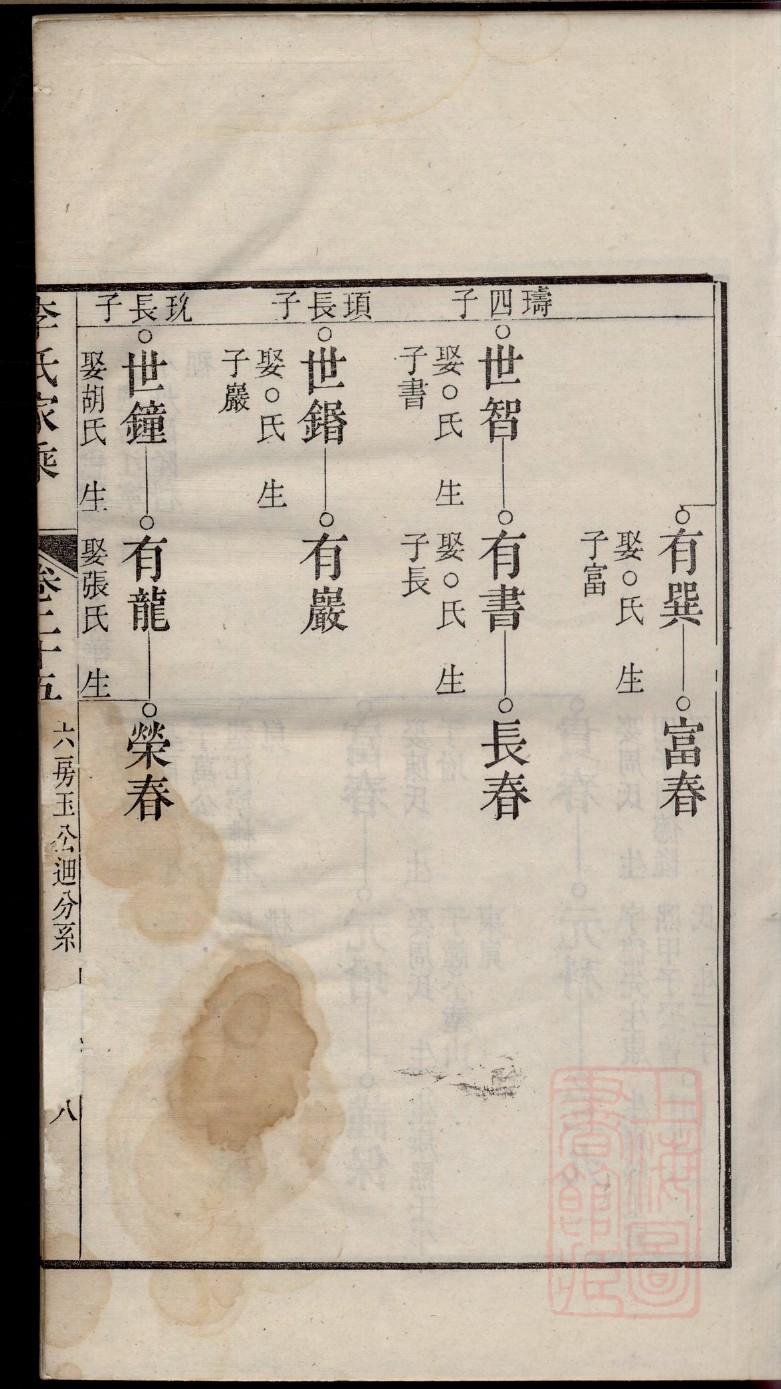 有巽
富春
娶○氏 生
子富
璹四子
世智
有書
長春
娶○氏 生
子書
娶○氏 生
子長
頊長子
世鍲
有巖
娶○氏 生
子巖
玧長子
世鐘
有龍
榮春
娶胡氏 生
娶張氏 生
李氏家乘
卷二十五
六房玉公迪分系
八
上海圖書館藏